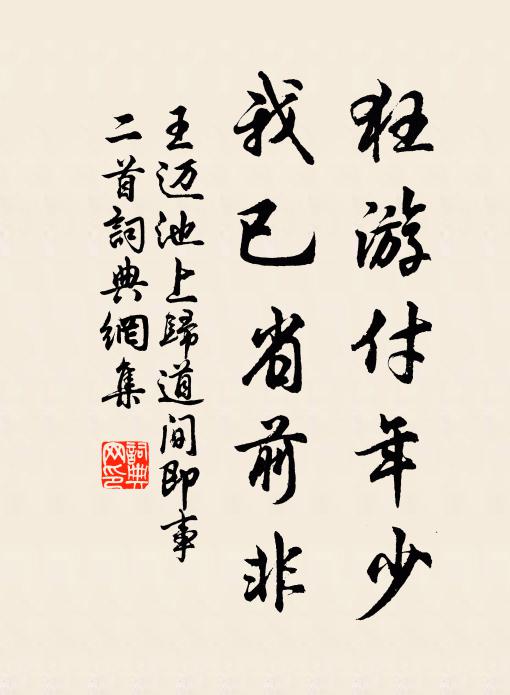 狂游付年少
我已省前非
王迈池上歸道间即事
二首詞典網集
詞典
网印